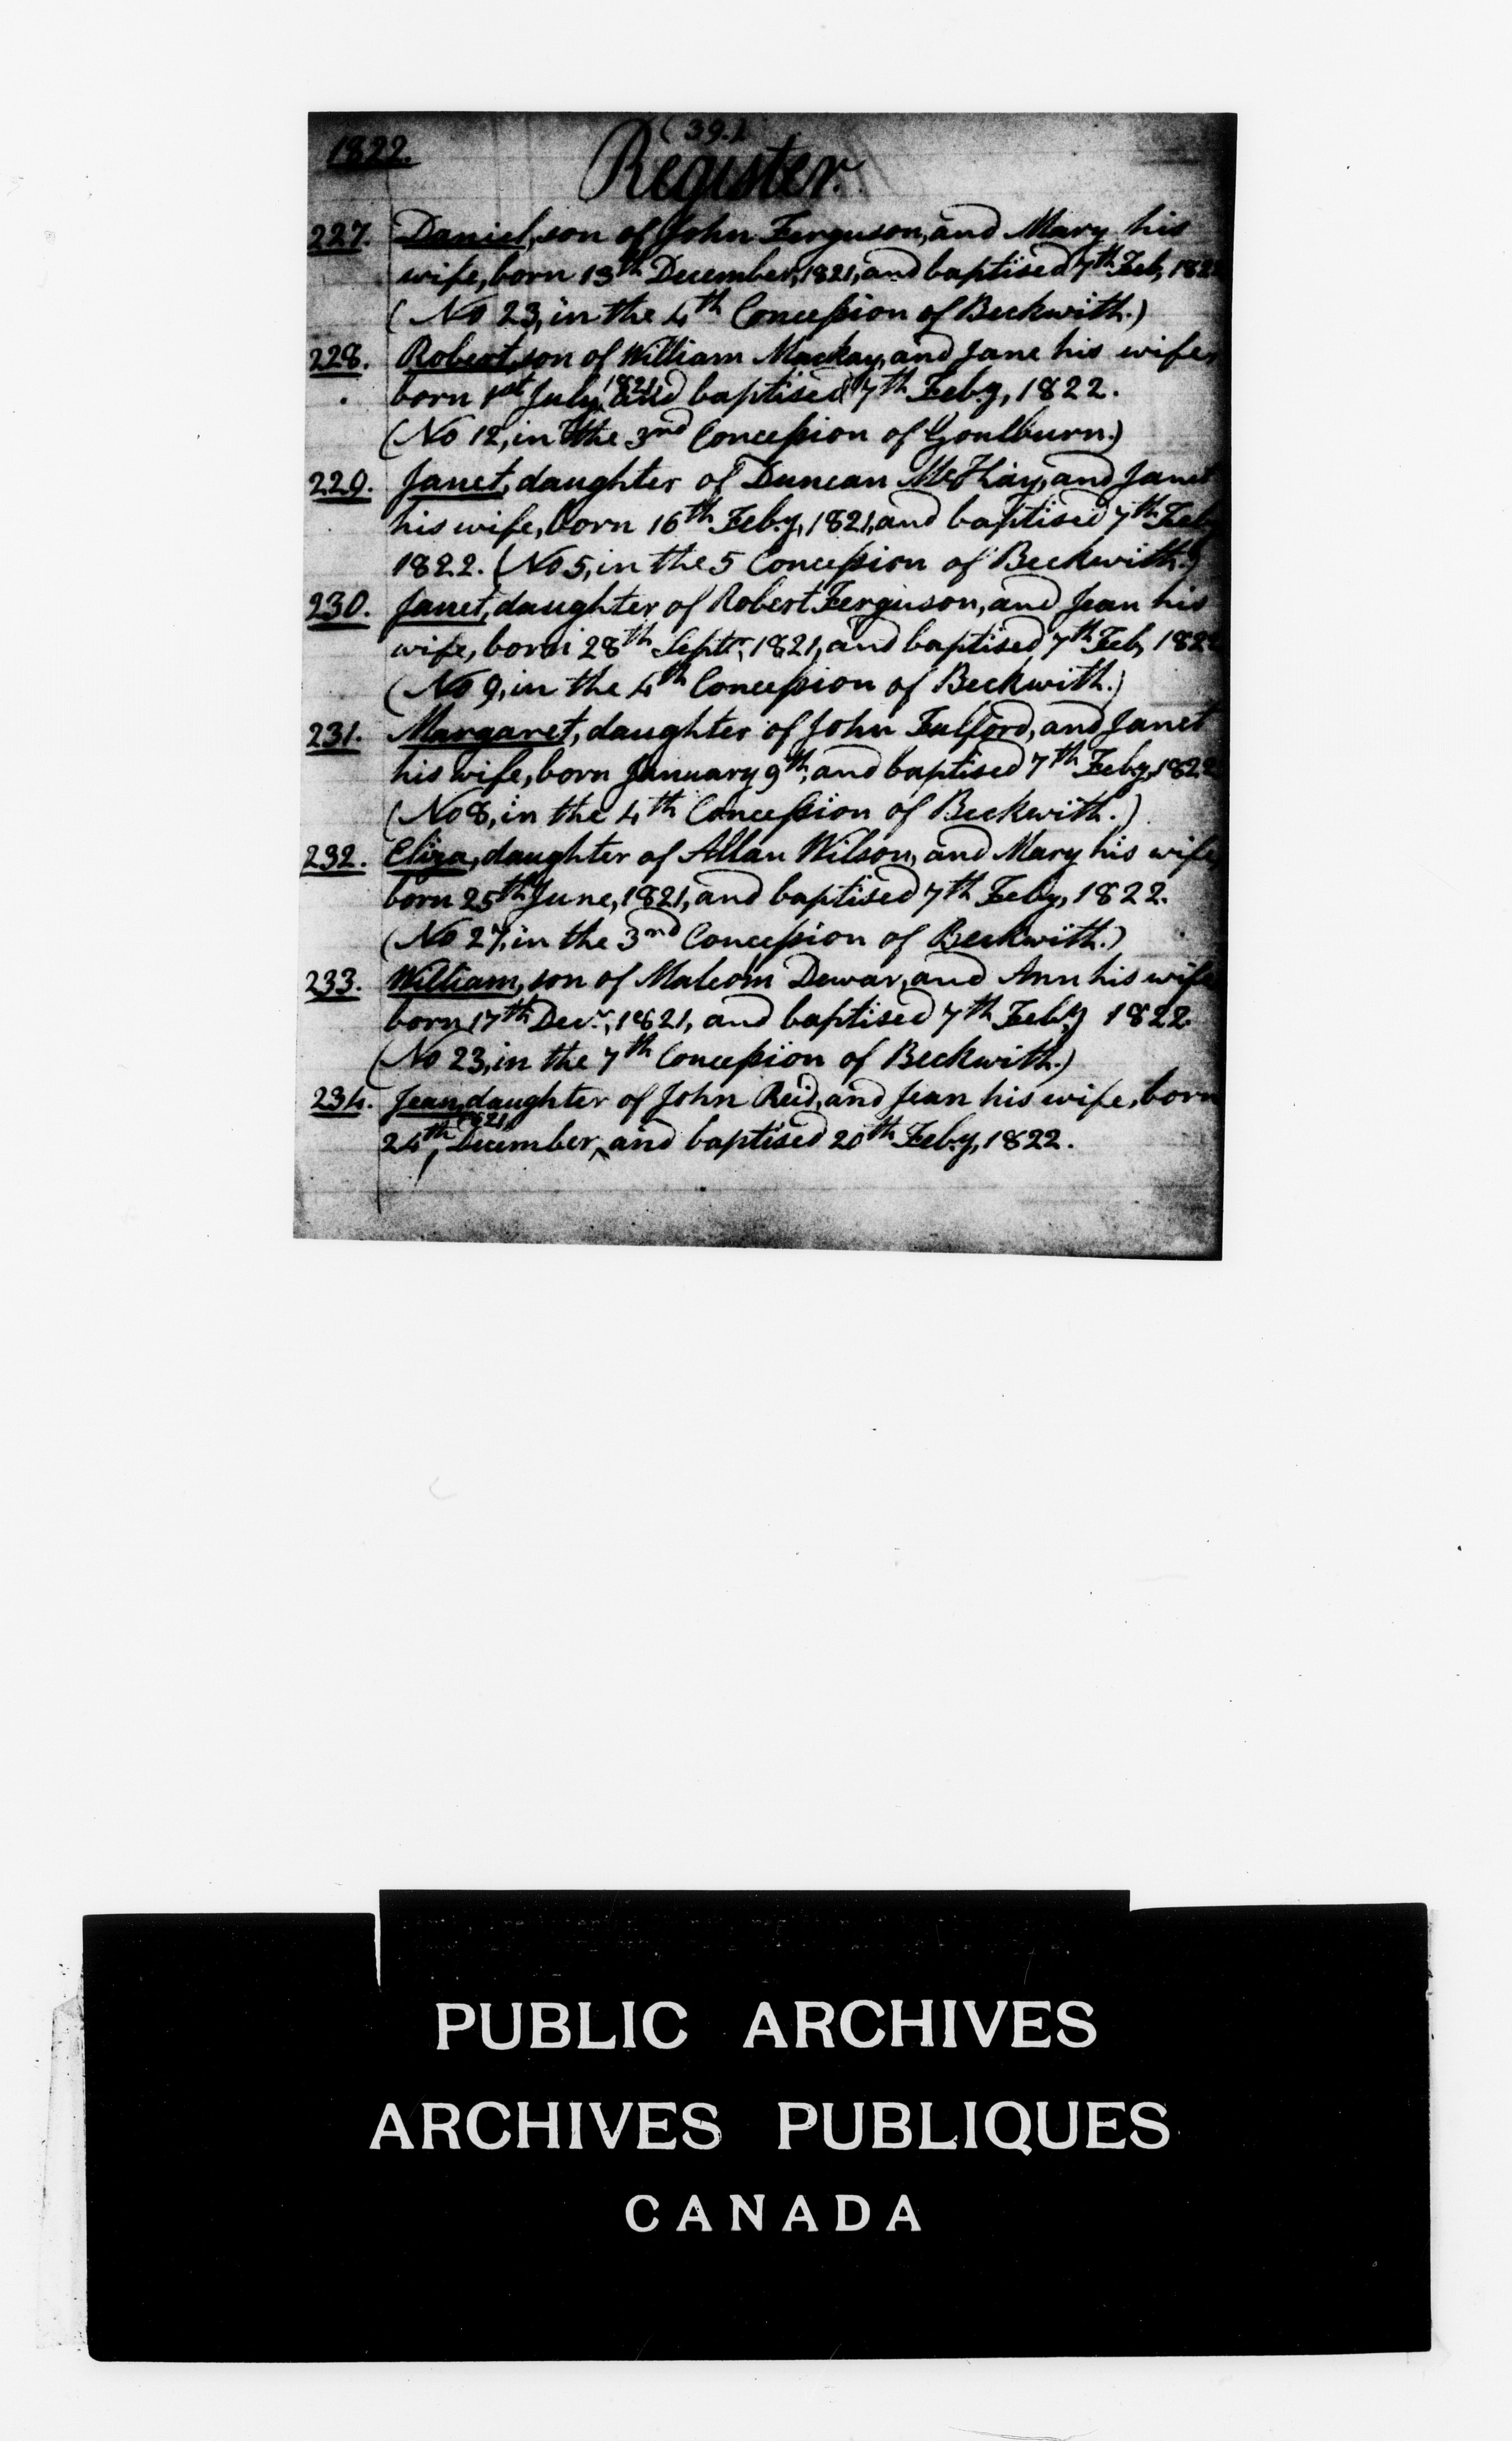 (39.)
1822.
Register.
227. Daniel, son of John Ferguson, and Mary his
wife, born 13th December, 1821, and baptised 7th Feb, 182
(No 23, in the 4th Concession of Beckwith.)
228. Robert, son of William Mackay, and Jane his wife,
born 1st July, 1821, and baptised 7th Feb.y, 1822.
(No 12, in the 3rd Concession of Goulburn.)
229. Janet, daughter of Duncan and Janet
his wife, born 16th Feb.y, 1821, and baptised 7th Feb.y
1822. (No 5, in the 5 Concession of Beckwith.)
230. Janet, daughter of Robert Ferguson, and Jean his
wife, born 28th Septr, 1821, and baptised 7th Feb, 1822
(No 9, in the 4th Concession of Beckwith.)
231. Margaret, daughter of John Fulford, and Janet
his wife, born January 9th, and baptised 7th Feb.y, 1822
(No 8, in the 4th Concession of Beckwith.)
232. Eliza, daughter of Allan Wilson, and Mary his wife
born 25th June, 1821, and baptised 7th Feby, 1822.
(No 27, in the 3rd Concession of Beckwith.)
233. William, son of Malcom Dewar, and Ann his wife
born 17th Decr, 1821, and baptised 7th Feb.y 1822.
(No 23, in the 7th Concession of Beckwith.)
234. Jean, daughter of John Reid, and Jean his wife, born
24th, December, 1821, and baptised 20th Feb.y, 1822.
PUBLIC ARCHIVES
ARCHIVES PUBLIQUES
CANADA